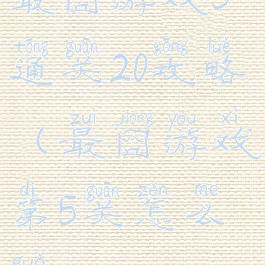 最囧游戏
tōng guān gōng lüè
通关20攻略
zuì jiǒng yóu xì
（最囧游戏
dì guān zěn me
第5关怎么
guò